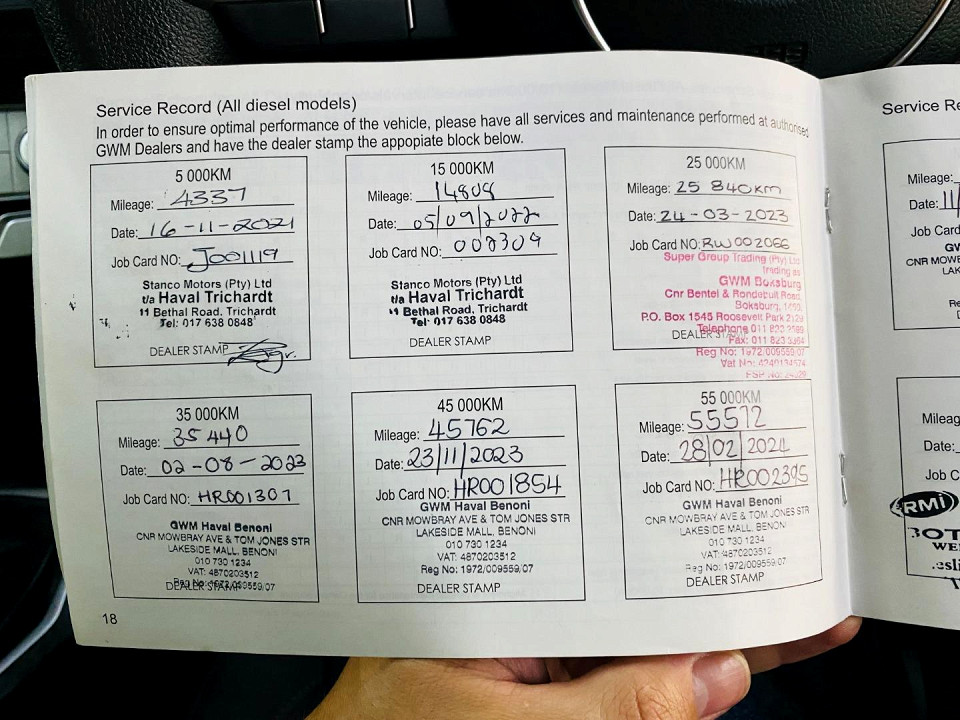 Service Record (All diesel models)
In order to ensure optimal performance of the vehicle, please have all services and maintenance performed at authorised
GWM Dealers and have the dealer stamp the appopiate block below.
5 000KM
Mileage: 4337
Date: 16-11-2021
Job Card NO: J001119
Stanco Motors (Pty) Ltd
t/a Haval Trichardt
11 Bethal Road, Trichardt
Tel: 017 638 0848
DEALER STAMP
15 000KM
Mileage: 14808
Date: 05/09/2022
Job Card NO: 002309
Stanco Motors (Pty) Ltd
t/a Haval Trichardt
11 Bethal Road, Trichardt
Tel: 017 638 0848
DEALER STAMP
25 000KM
Mileage: 25 840KM
Date: 24-03-2023
Job Card NO: RW002066
Super Group Trading (Pty) Ltd
trading as
GWM Boksburg
Cnr Bentel & Rondebult Road,
Boksburg,
P.O. Box 1545 Roosevelt Park 2129
Telephone 011 823
DEALER STAMP
Fax: 011 823
Reg No: 1972/009559/07
Vat No:
35 000KM
Mileage: 35 440
Date: 02-08-2023
Job Card NO: HR001307
GWM Haval Benoni
CNR MOWBRAY AVE & TOM JONES STR
LAKESIDE MALL, BENONI
010 730 1234
VAT: 4870203512
Reg No: 1972/009559/07
DEALER STAMP
45 000KM
Mileage: 45762
Date: 23/11/2023
Job Card NO: HR001854
GWM Haval Benoni
CNR MOWBRAY AVE & TOM JONES STR
LAKESIDE MALL, BENONI
010 730 1234
VAT: 4870203512
Reg No: 1972/009559/07
DEALER STAMP
55 000KM
Mileage: 55572
Date: 28/02/2024
Job Card NO: HR002395
GWM Haval Benoni
CNR MOWBRAY AVE & TOM JONES STR
LAKESIDE MALL, BENONI
010 730 1234
VAT: 4870203512
Reg No: 1972/009559/07
DEALER STAMP
18
Service Re
Mileage:
Date: 11/
Job Card
GW
CNR MOWB
LAK
Re
Mileage
Date:
Job C
RMi
BOT
WE